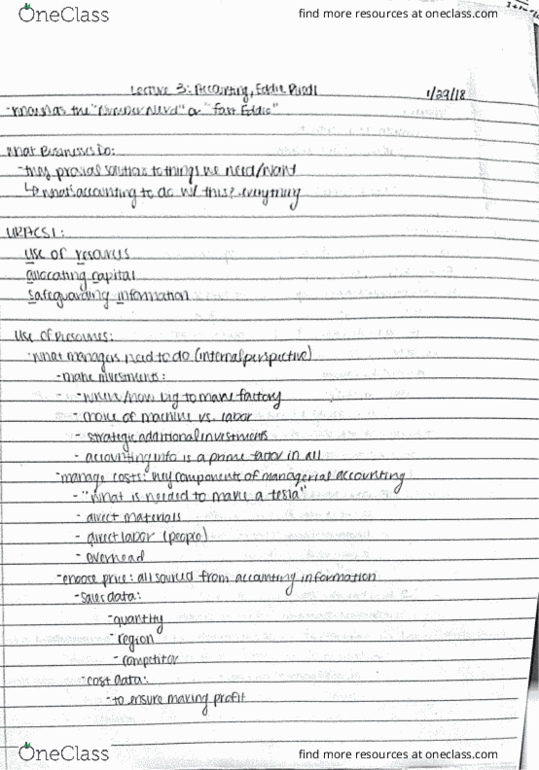 OneClass
find more resources at oneclass.com
Lecture 3: Accounting, Eddie
1/29/18
-known as the "Number Nerd" or "Fast Eddie"
What Businesses Do:
-they provide solutions to things we need/want
↳ what's accounting to do w/ this? everything
URACSI:
Use of resources
allocating capital
Safeguarding information
Use of Resources:
-what managers need to do (internal perspective)
-make investments:
-when/how big to make factory
- choice of machine vs. labor
- strategic additional investments
- accounting info is a prime factor in all
-manage costs: key components of managerial accounting
- "what is needed to make a tesla"
- direct materials
- direct labor (people)
- overhead
-choose price: all sourced from accounting information
-sales data:
-quantity
- region
- competitor
-cost data:
-to ensure making profit
OneClass
find more resources at oneclass.com